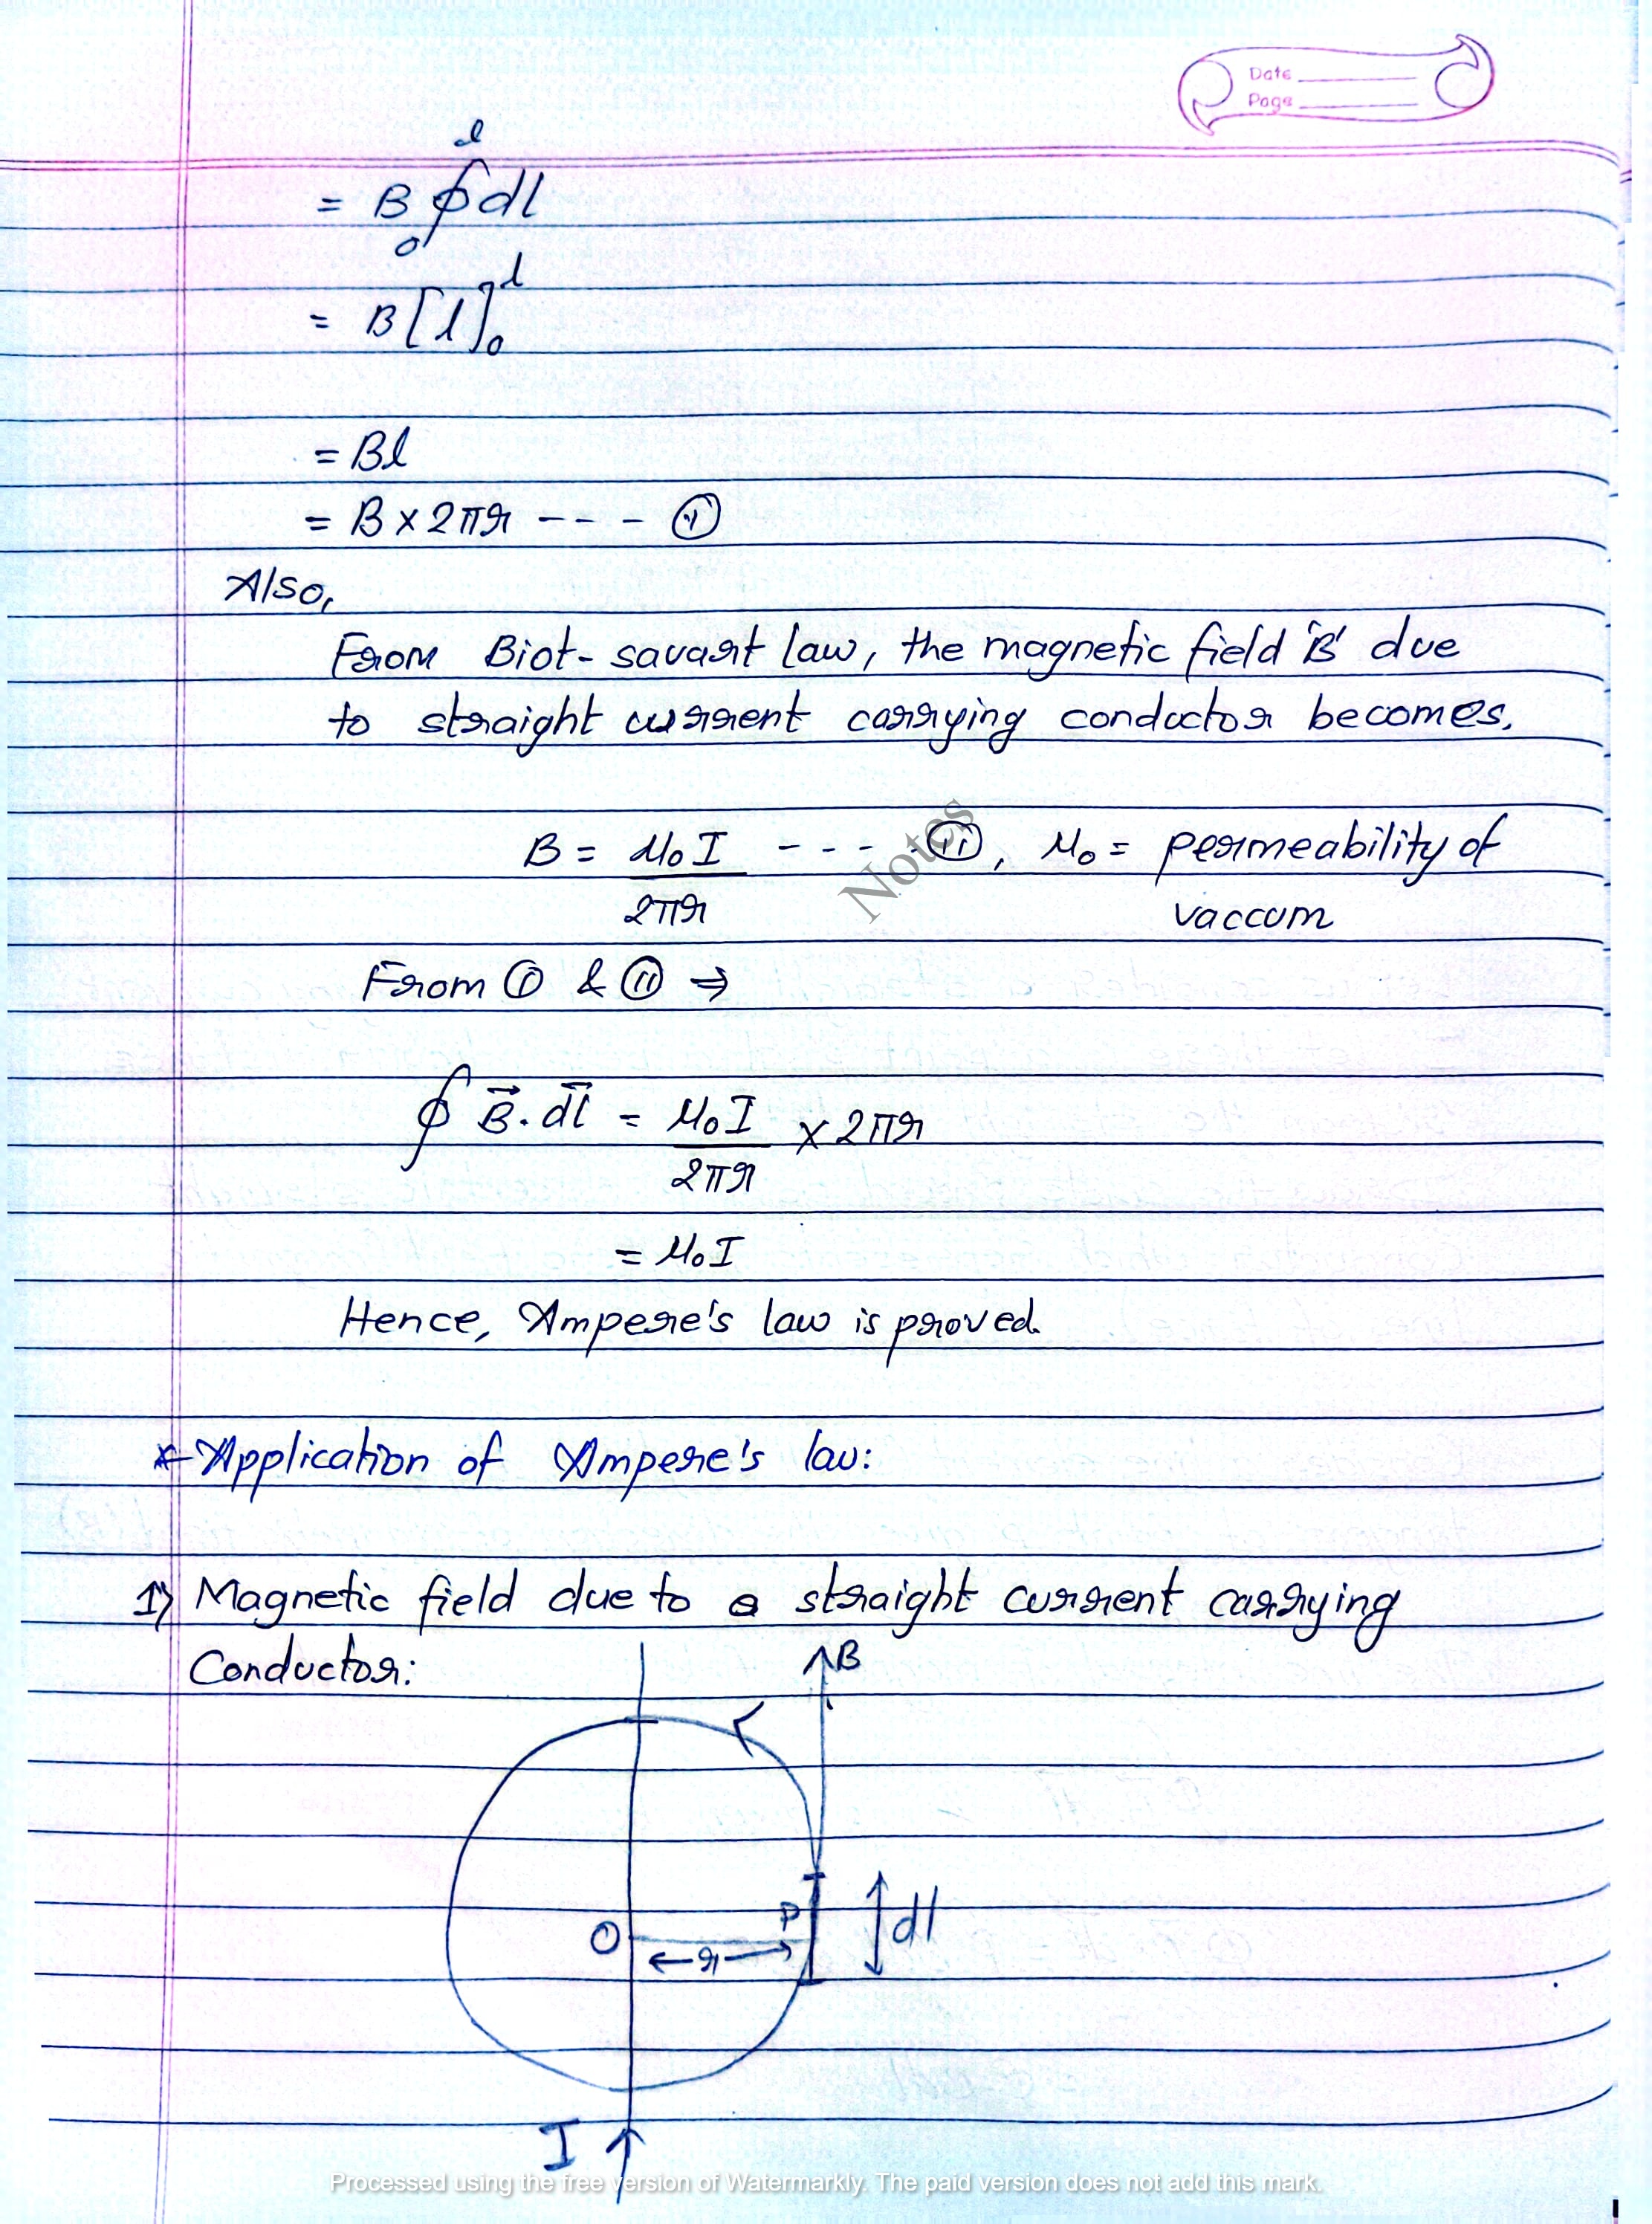 Date
Page
= B ∮₀ˡ dl
= B[l]₀ˡ
= Bl
= B × 2πr ---- (i)
Also,
From Biot-savart law, the magnetic field 'B' due
to straight current carrying conductor becomes.
B = μ₀I / 2πr ---- (ii), μ₀ = permeability of
vaccum
Notes
From (i) & (ii) ⇒
∮ B⃗. dl⃗ = μ₀I / 2πr × 2πr
= μ₀I
Hence, Ampere's law is proved.
* Application of Ampere's law:
1) Magnetic field due to a straight current carrying
Conductor:
B
P
dl
O
r
I
Processed using the free version of Watermarkly. The paid version does not add this mark.